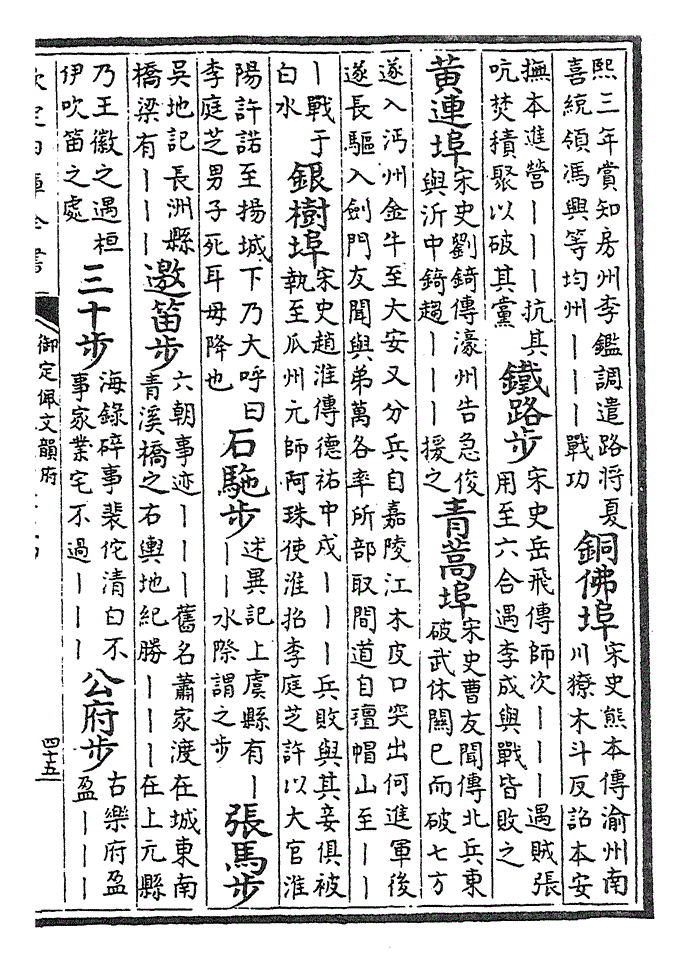 熙三年賞知房州李鑑調遣路將夏
喜統領馮興等均州丨丨丨戰功
銅佛埠
宋史熊本傳渝州南
川獠木斗反詔本安
撫本進營丨丨丨抗其
吭焚積聚以破其黨
鐵路步
宋史岳飛傳師次丨丨丨遇賊張
用至六合遇李成與戰皆敗之
黃連埠
宋史劉錡傳濠州告急俊
與沂中錡趨丨丨丨援之
青蒿埠
宋史曹友聞傳北兵東
破武休關巳而破七方
遂入沔州金牛至大安又分兵自嘉陵江木皮口突出何進軍後
遂長驅入劍門友聞與弟萬各率所部取間道自帽山至丨丨
丨戰于
白水
銀樹埠
宋史趙淮傳德祐中戍丨丨丨兵敗與其妾俱被
執至瓜州元師阿珠使淮招李庭芝許以大官淮
陽許諾至揚城下乃大呼曰
李庭芝男子死耳毋降也
石駞步
述異記上虞縣有丨
丨丨水際謂之步
張馬步
吳地記長洲縣
橋梁有丨丨丨
邀笛步
六朝事迹丨丨丨舊名蕭家渡在城東南
青溪橋之右輿地紀勝丨丨丨在上元縣
乃王徽之遇桓
伊吹笛之處
三十步
海錄碎事裴侘清白不
事家業宅不過丨丨丨
公府步
古樂府盈
盈丨丨丨
御定佩文韻府
四十五